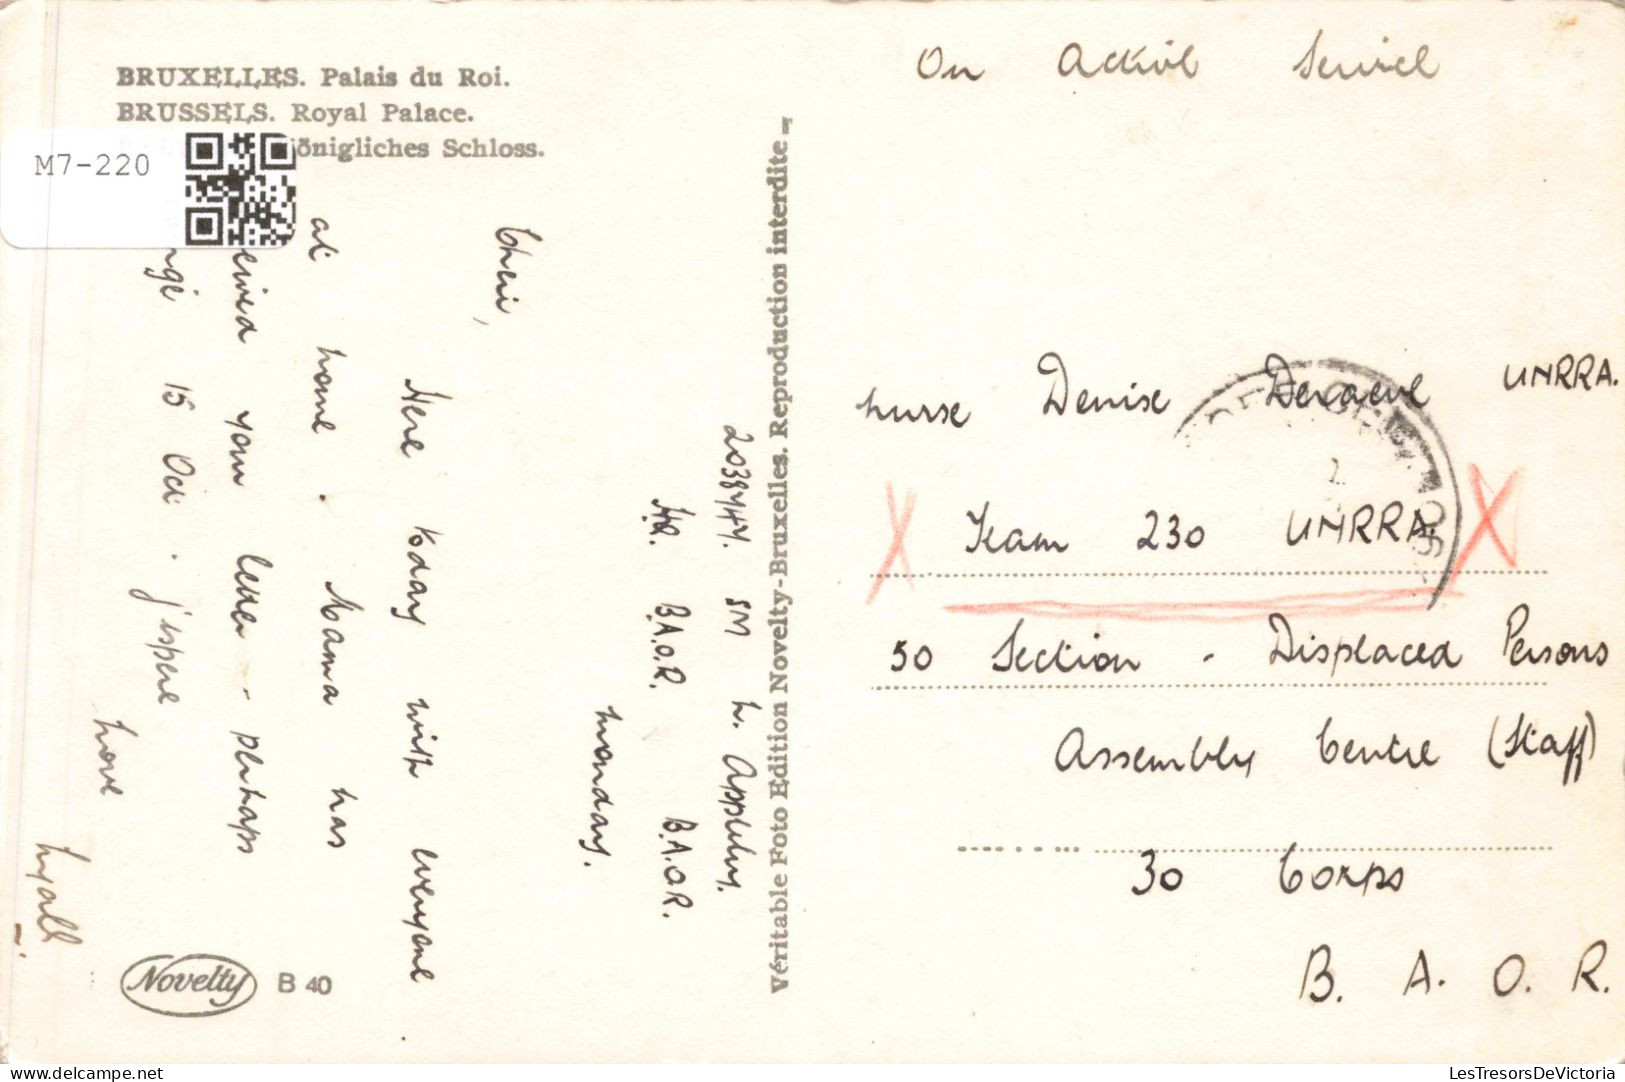 BRUXELLES. Palais du Roi.
BRUSSELS. Royal Palace.
önigliches Schloss.
M7-220
On Active Service
Nurse Denise Deraeve UNRRA.
Team 230 UNRRA.
50 Section - Displaced Persons
Assembly Centre (Staff)
30 Corps
B. A. O. R.
SM L. Appleby.
HQ. B.A.O.R. B.A.O.R.
Monday.
Cheri,
Here today with everyone
at home. Mama has
your letter - perhaps
15 Oct. j'espere
Love
Lyall
Véritable Foto Edition Novelty-Bruxelles. Reproduction interdite
Novelty B 40
delcampe.net
LesTresorsDeVictoria